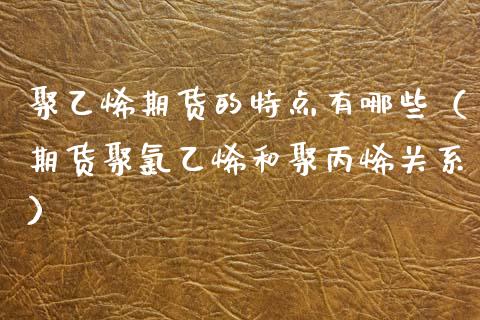 聚乙烯期货的特点有哪些（
期货聚氯乙烯和聚丙烯关系
）